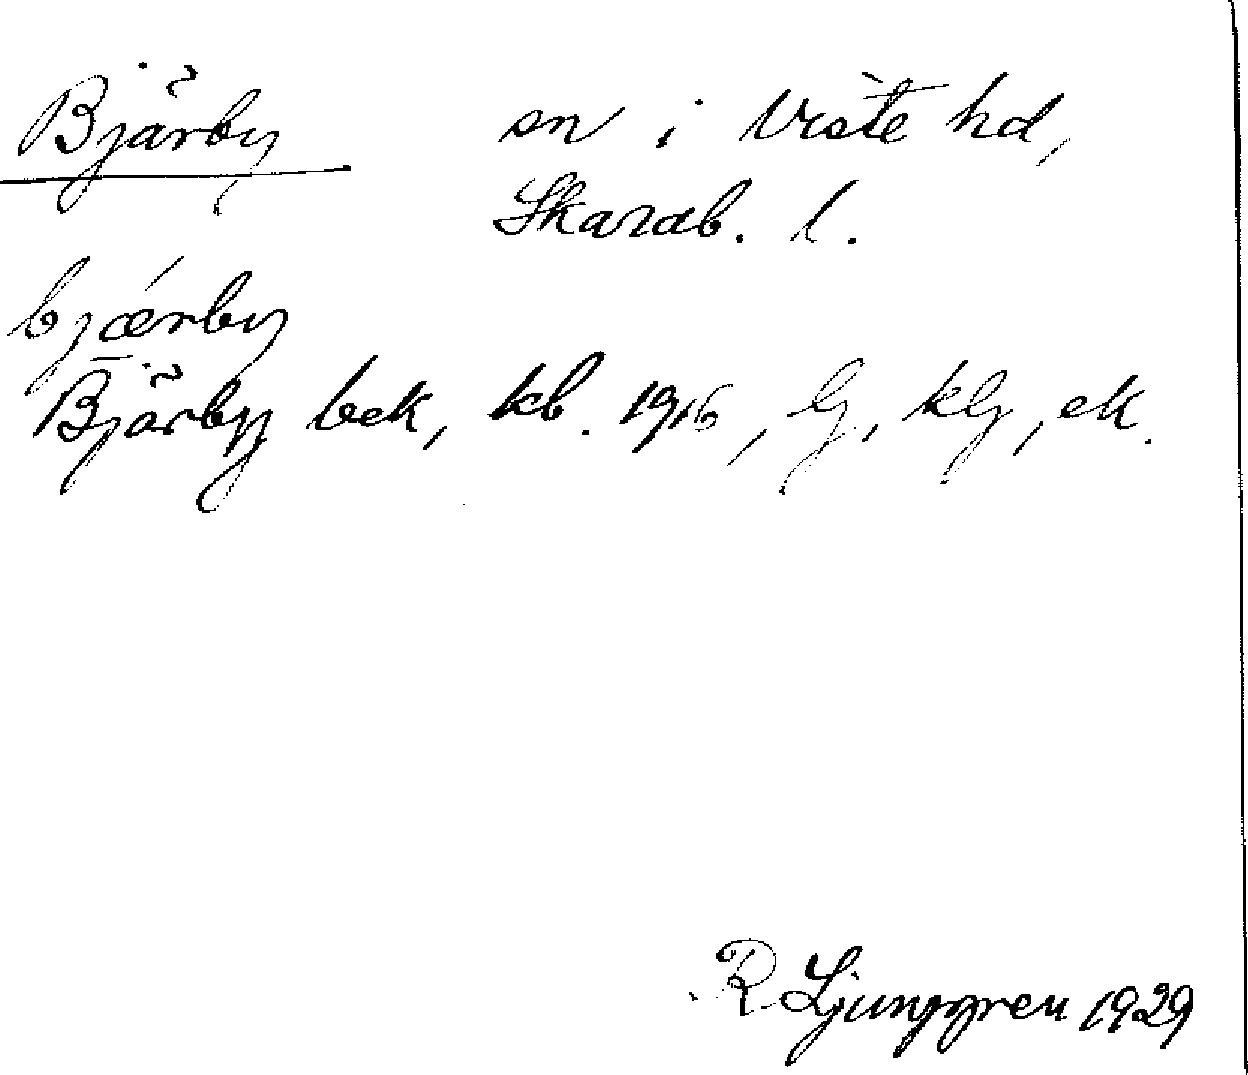 Bjärby sn i Viste hd,
Skarab. l.
bjǽrby
Bjärby bek, kb. 1916, lj, klj, ek.
R Ljunggren 1929